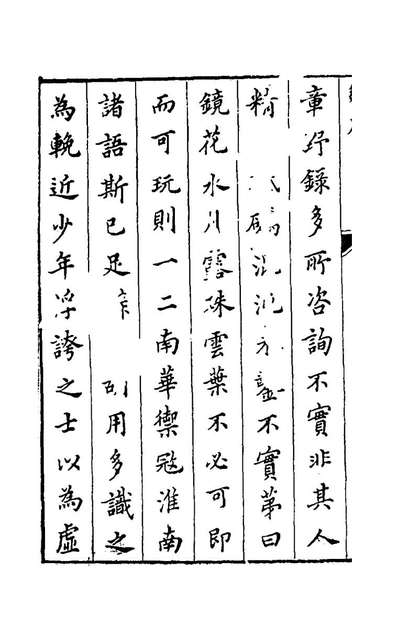 章㺿錄多所咨詢不實非其人
精　　　　　　不實第曰
鏡花水月露珠雲葉不必可即
而可玩則一二南華禦冠淮南
諸語斯已足　　用多識之
為輓近少年浮誇之士以為虛